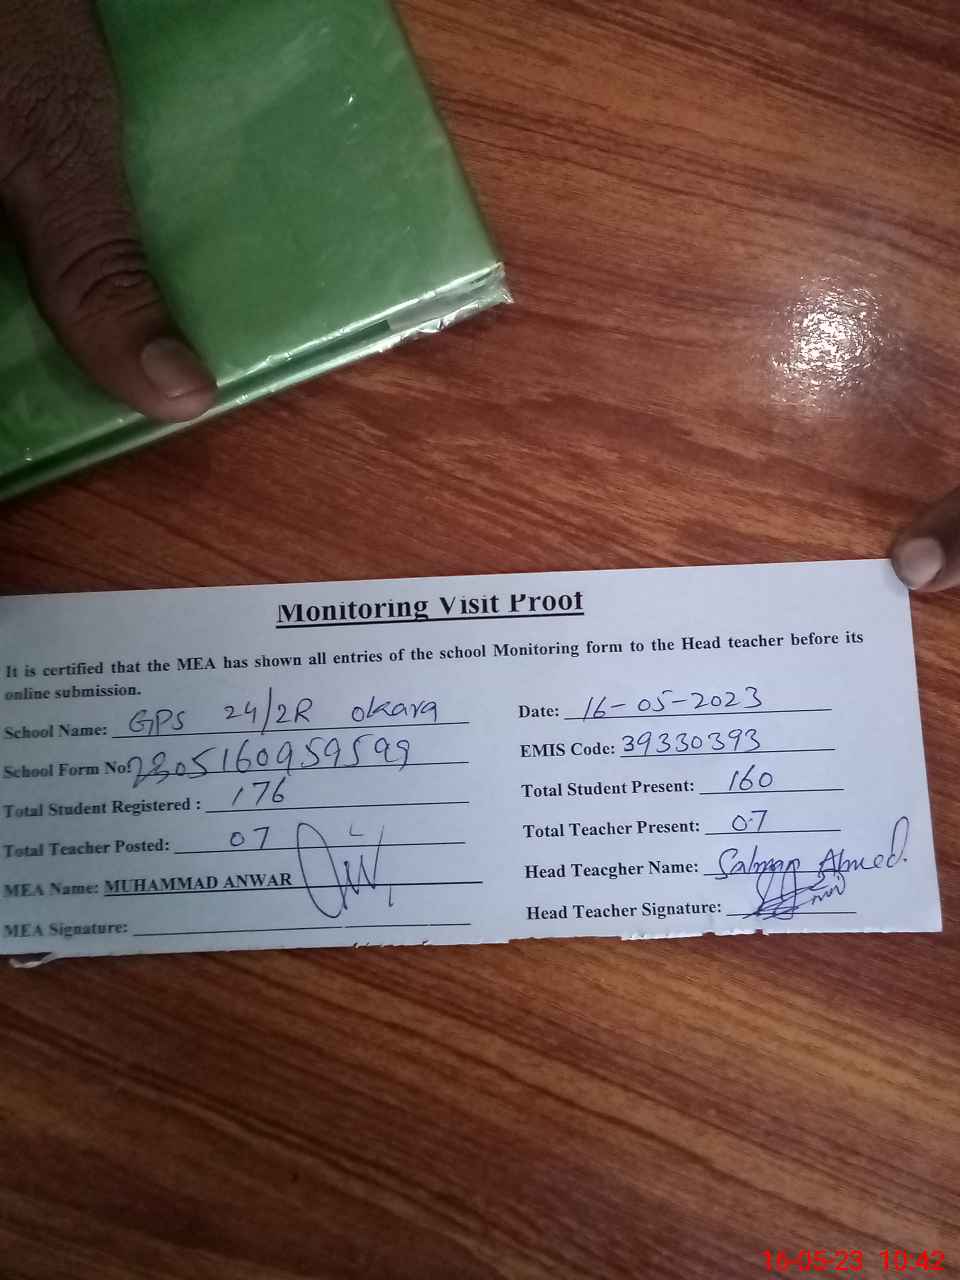 Monitoring Visit Proof
It is certified that the MEA has shown all entries of the school Monitoring form to the Head teacher before its
online submission.
School Name: GPS 24/2R okara
Date: 16-05-2023
School Form No: 2305160959599
EMIS Code: 39330393
Total Student Registered : 176
Total Student Present: 160
Total Teacher Posted: 07
Total Teacher Present: 07
MEA Name: MUHAMMAD ANWAR
Head Teacgher Name: Salman Ahmed.
MEA Signature:
Head Teacher Signature:
16-05-23 10:42